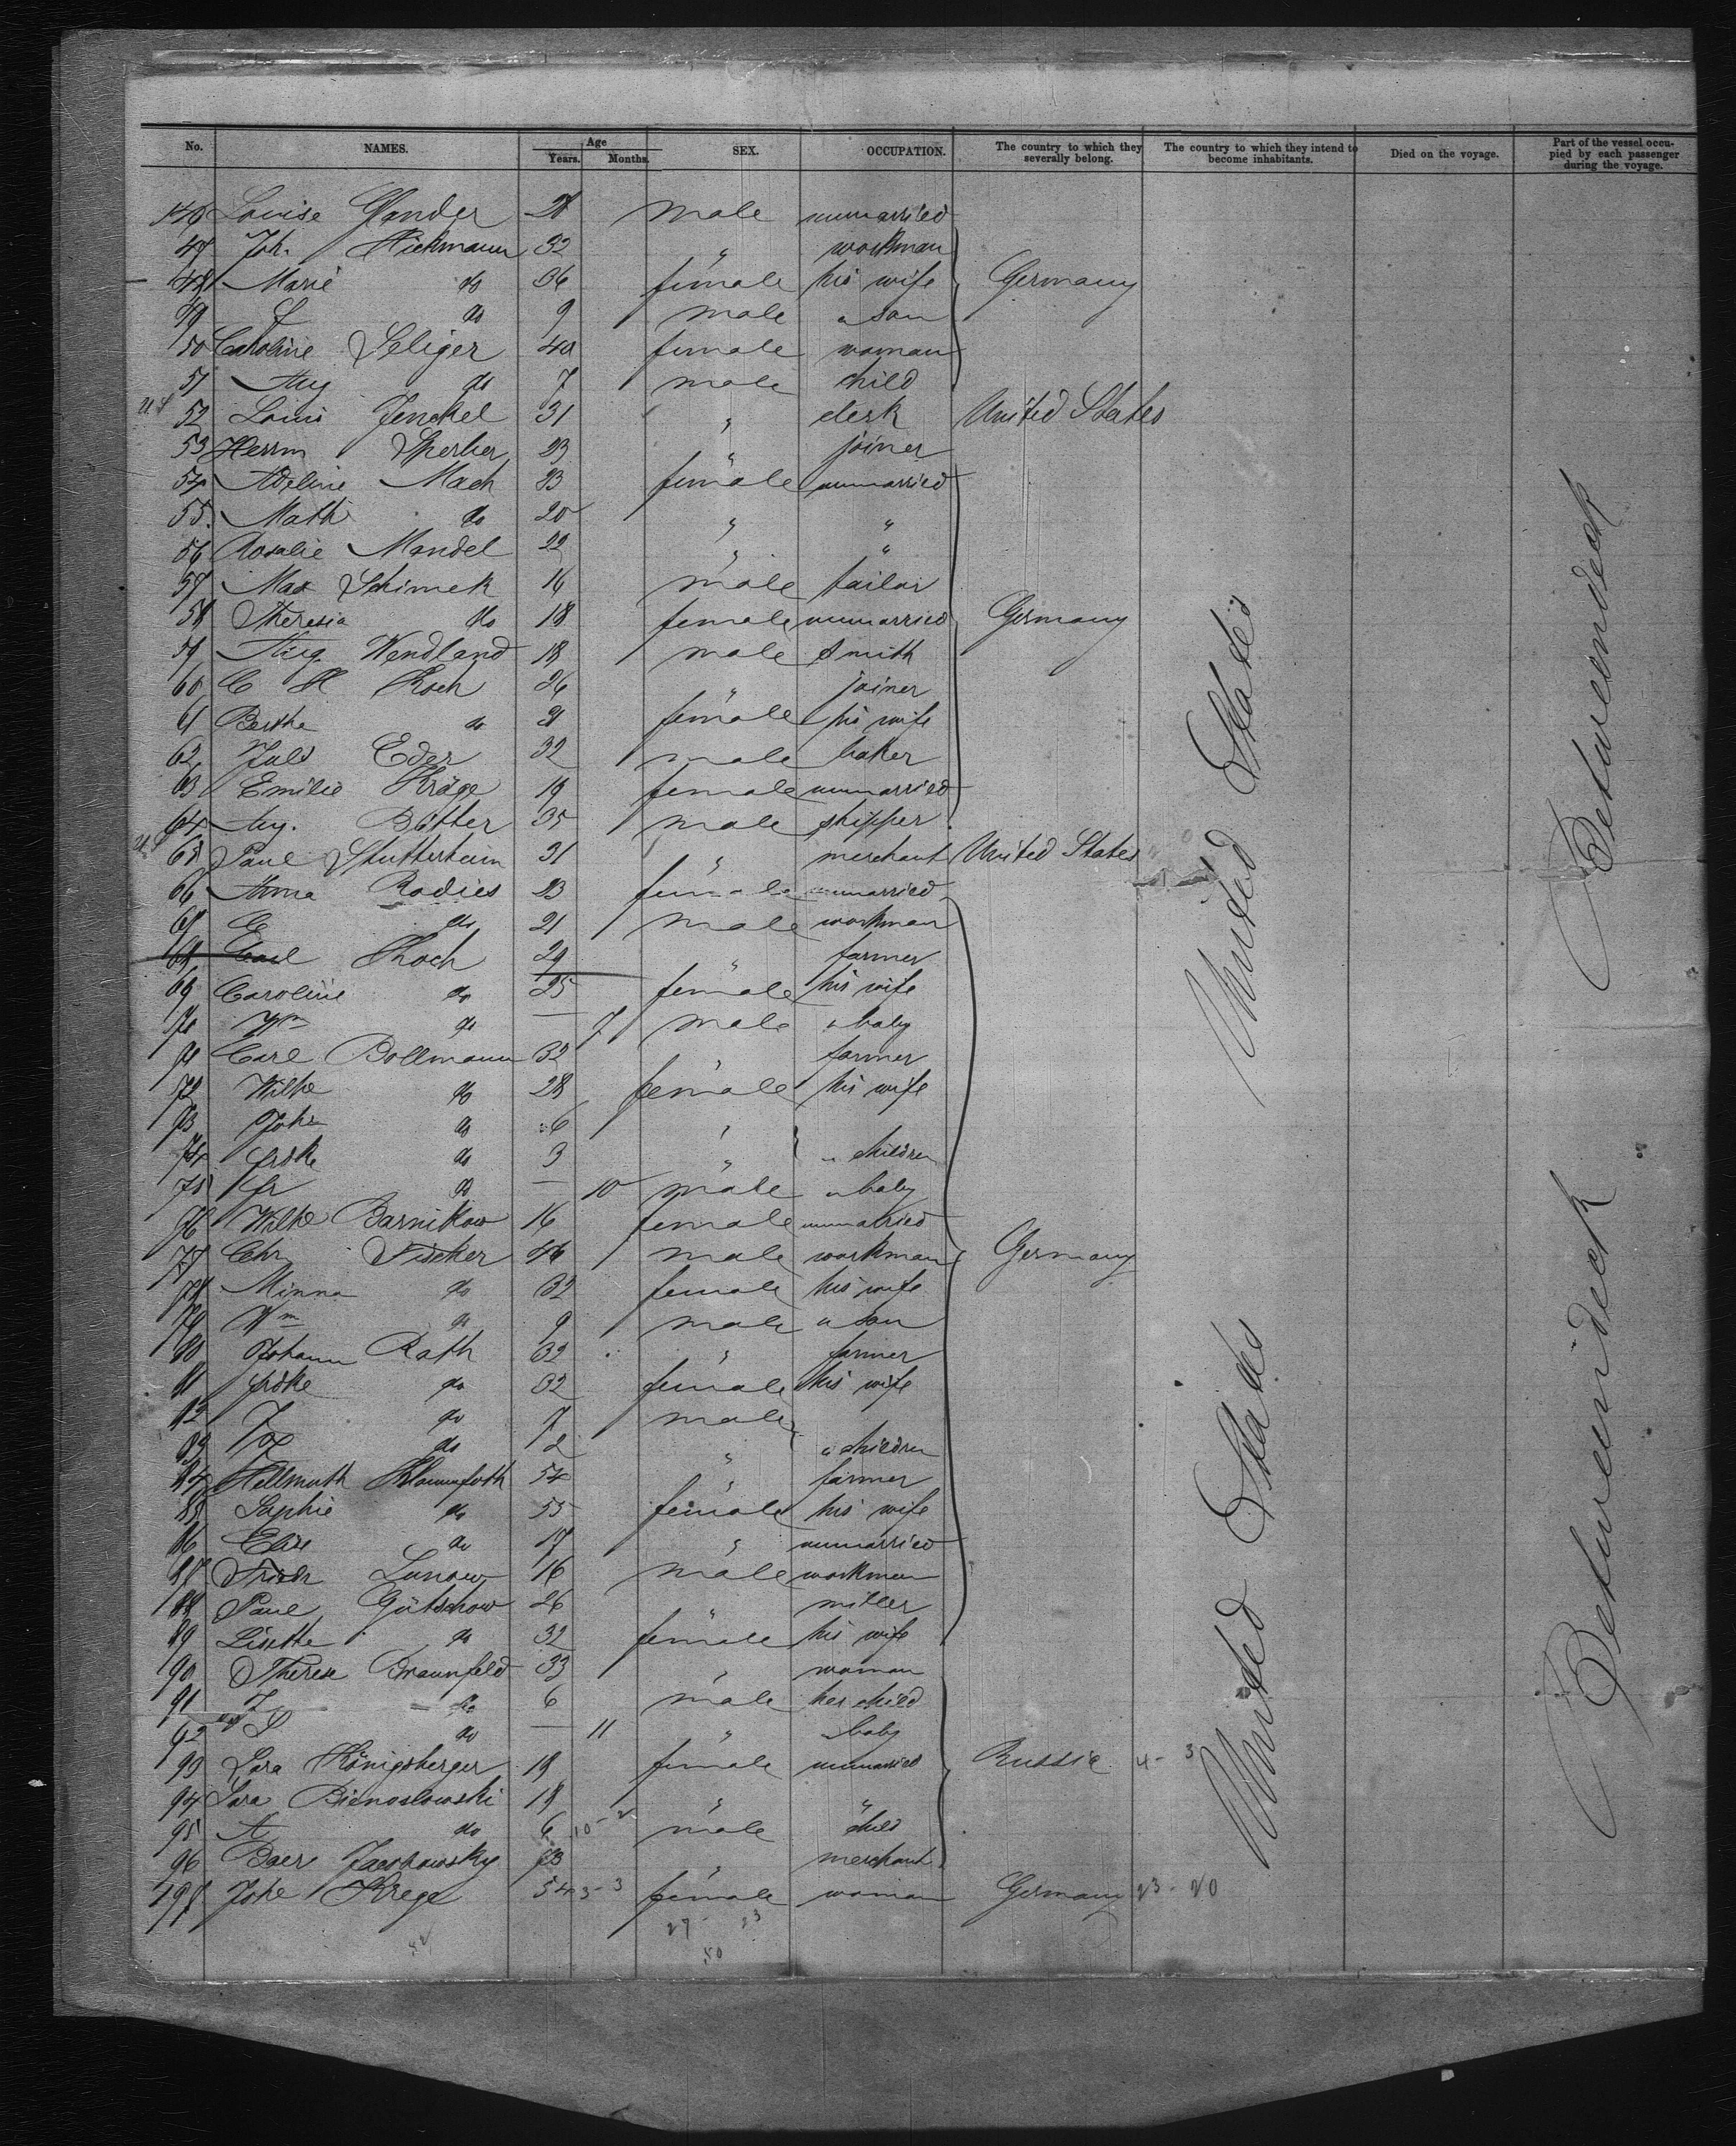 No. NAMES. Age Years. Months. SEX. OCCUPATION. The country to which they severally belong. The country to which they intend to become inhabitants. Died on the voyage. Part of the vessel occupied by each passenger during the voyage.
146 Louise Glander 28 male unmarried
47 Joh. Hickmann 32 " workman
48 Marie do 36 female his wife Germany
49 J do 9 male " son
50 Caroline Seliger 40 female woman
51 Aug do 7 male child
U S 52 Louis Jenckel 31 " clerk United States
53 Herrm Sperber 23 " joiner
54 Adeline Mach 23 female unmarried
55 Math do 20 " "
56 Rosalie Mandel 22 " "
57 Max Schimek 16 male tailor
58 Theresia do 18 female unmarried Germany
59 Aug. Wendland 18 male smith
60 C H Koch 26 " joiner
61 Bertha do 21 female his wife
62 Juls Eder 32 male baker
63 Emilie Kräge 19 female unmarried
64 Aug. Bötther 35 male skipper
U S 65 Paul Stutterheim 31 " merchant United States
66 Anna Rodies 23 female unmarried
67 C do 21 male workman
68 Carl Koch 29 " farmer
69 Caroline do 25 female his wife
70 Wm do — 7 male " baby
71 Carl Bollmann 32 " farmer
72 Wilhe do 28 female his wife
73 Joha do 6 "
74 Frdke do 3 " " children
75 Fr do — 10 male " baby
76 Wilhe Barnikow 16 female unmarried
77 Chr Fischer 46 male workman Germany
78 Minna do 32 female his wife
79 Wm do 9 male " son
80 Johann Rath 32 " farmer
81 Frdke do 32 female his wife
82 J do 7 male
83 do 2 " " children
84 Hellmuth 54 " farmer
85 Sophie do 55 female his wife
86 Elise do 17 " unmarried
87 Friedr Lunow 16 male workman
88 Paul Gütschow 26 " miller
89 Lisette do 32 female his wife
90 Therese Braunfeld 33 " woman
91 do 6 male her child
92 S do — 11 " " baby
93 Sara Königsberger 19 female unmarried Russia 4 - 3
94 Sara Bienoslowski 18 " "
95 A do 6 10 - 2 male child
96 Baer Jacobowsky 23 " merchant
197 Johe Krege 54 3 - 3 female woman Germany 23 - 20
27 - 23
50
United States
United States
Betweendeck
Betweendeck